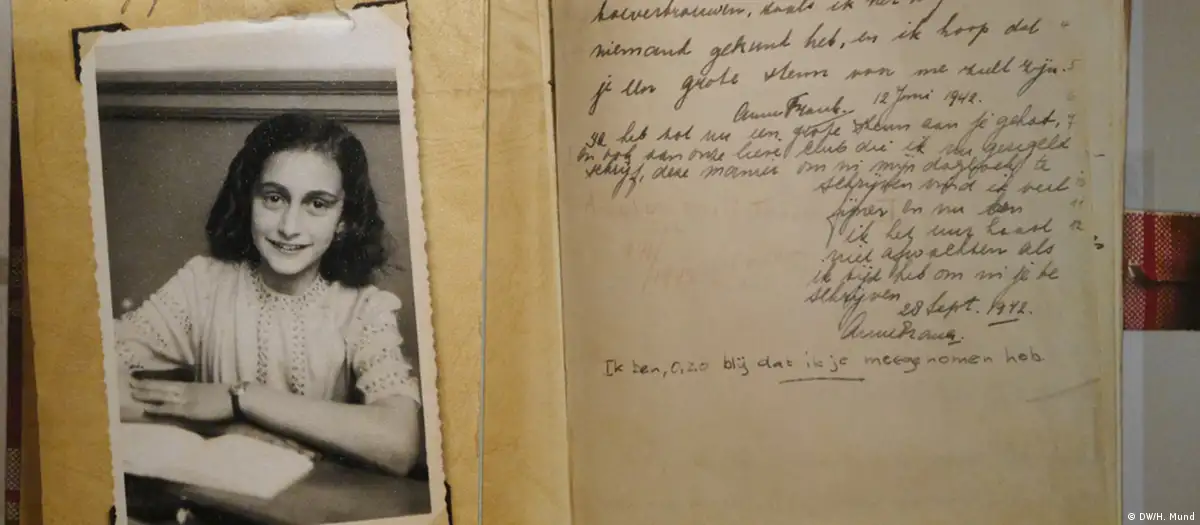 toevertrouwen, zoals ik het nog
niemand gekund heb, en ik hoop dat
je een grote steun van me zult zijn.
Anne Frank. 12 Juni 1942.
Ik heb tot nu een grote steun aan je gehad,
en ook aan onze lieve club die ik nu geregeld
schrijf, deze manier om in mijn dagboek te
schrijven vind ik veel
fijner en nu kan
ik het uur haast
niet afwachten als
ik tijd heb om in je te
schrijven
28 Sept. 1942.
Anne Frank.
Ik ben, o, zo blij dat ik je meegenomen heb.
© DW/H. Mund